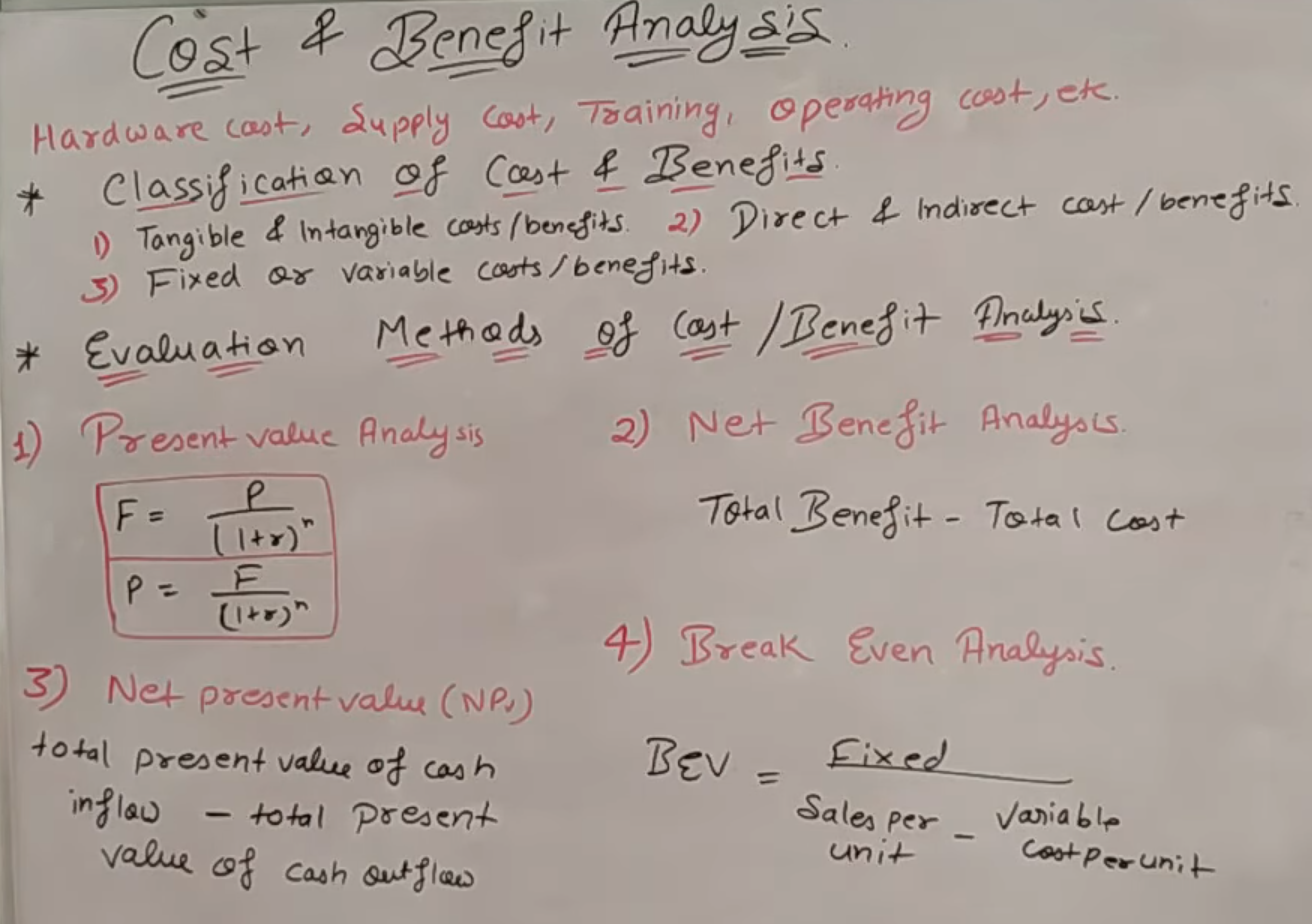 Cost & Benefit Analysis.
Hardware cost, Supply cost, Training, operating cost, etc.
* Classification of Cost & Benefits.
1) Tangible & Intangible costs/benefits. 2) Direct & Indirect cost/benefits.
3) Fixed or variable costs/benefits.
* Evaluation Methods of Cost/Benefit Analysis.
1) Present value Analysis
F = P / (1+r)^n
P = F / (1+r)^n
2) Net Benefit Analysis.
Total Benefit - Total Cost
3) Net present value (NPV)
total present value of cash
inflow - total present
value of cash outflow
4) Break Even Analysis.
BEV = Fixed
Sales per unit - Variable Cost per unit